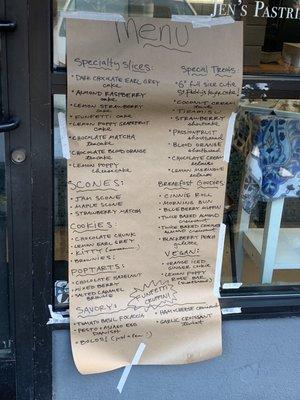 JEN'S PASTRI
Menu
Specialty Slices:
• Dark Chocolate Earl Grey
cake
• Almond Raspberry
cake
• Lemon Strawberry
cake
• Funfetti cake
• Lemon Poppy Grapefruit
cake
• Chocolate Matcha
• Chocolate Blood Orange
• Lemon Poppy
cheesecake
Scones:
• Jam Scone
• Maple Scone
• Strawberry Matcha
Cookies
• Chocolate Chunk
• Lemon Earl Grey
• Kitty
• Brownies
Poptarts:
• Chocolate Hazelnut
• Mixed Berry
• Salted Caramel
Brownie
Savory:
• Tomato Basil Focaccia
• Pesto + Asiago Egg
Danish
• Bolos!
Special Treats
• 6" Full Size Cute
• Coconut Cream
• Tiramisu
• Strawberry
shortbread
• Passionfruit
shortbread
• Blood Orange
shortbread
• Chocolate Cream
• Lemon Meringue
Breakfast Goodies
• Cinnie Roll
• Morning Bun
• Blueberry Muffin
• Twice Baked Almond
Croissant
• Twice Baked
croissant
• Blackberry Peach
Vegan:
• Orange Iced
Ginger Cookie
• Lemon Poppy
Earl Grey
• Funfetti
Muffin!
• Ham + Cheese Croissant
• Garlic Croissant